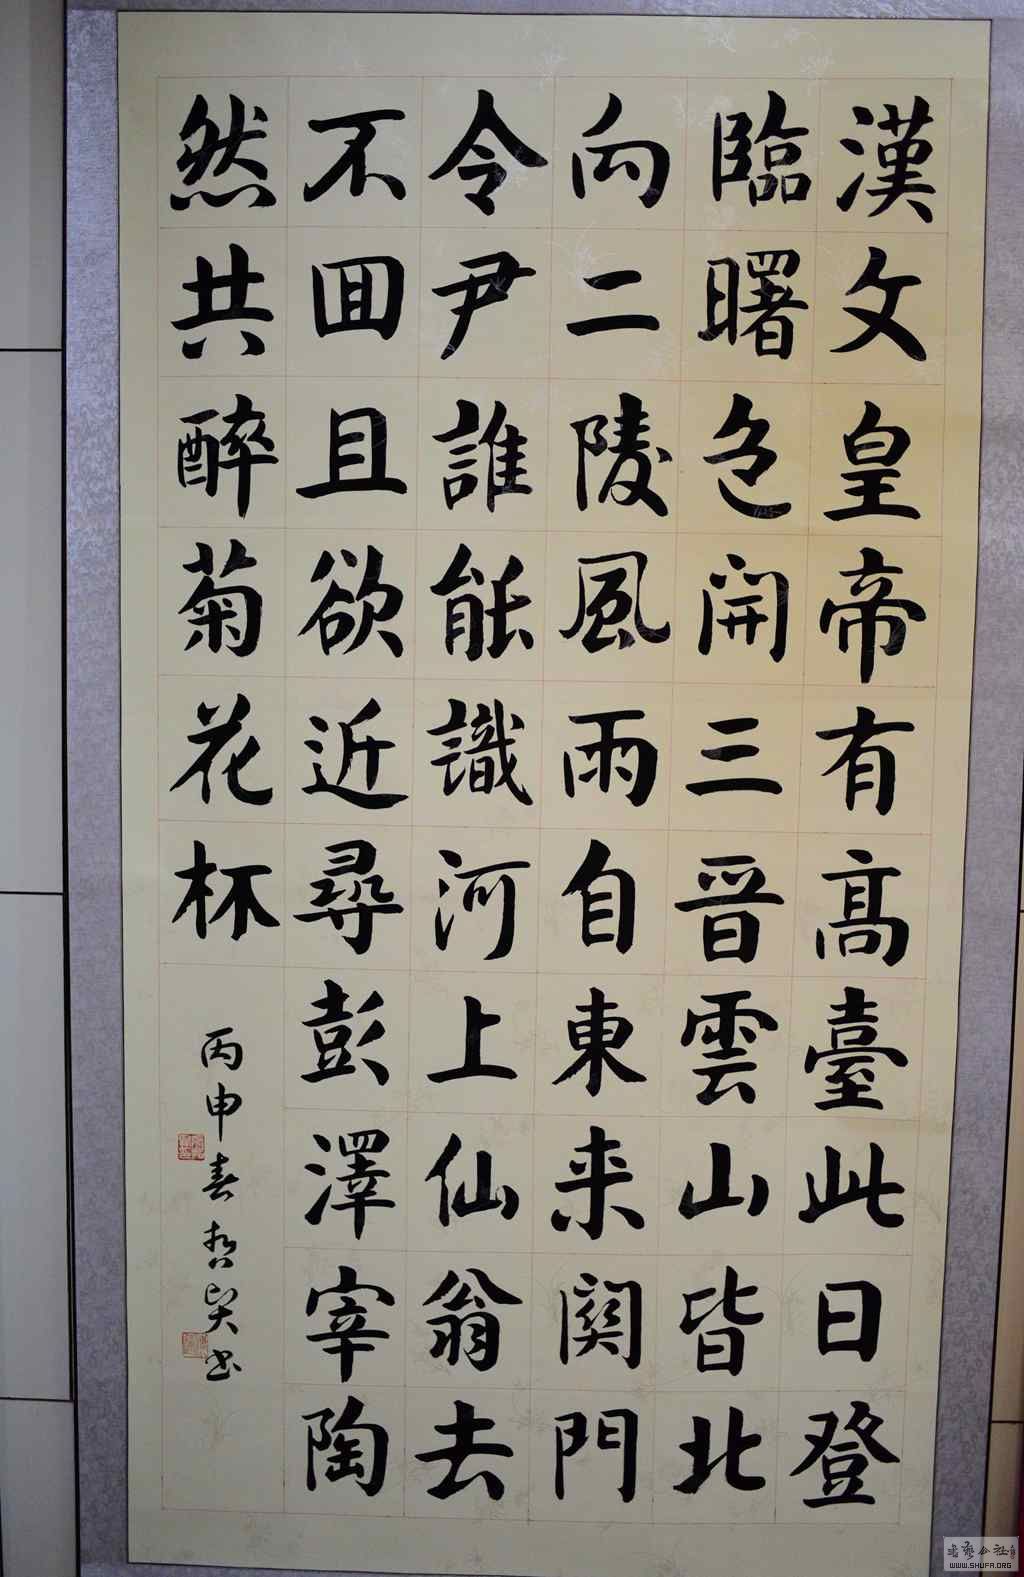 漢文皇帝有髙臺此日登
臨曙色開三晉雲山皆北
向二陵風雨自東来關門
令尹誰能識河上仙翁去
不囬且欲近尋彭澤宰陶
然共醉菊花杯
丙申春哲书
书艺公社
WWW.SHUFA.ORG